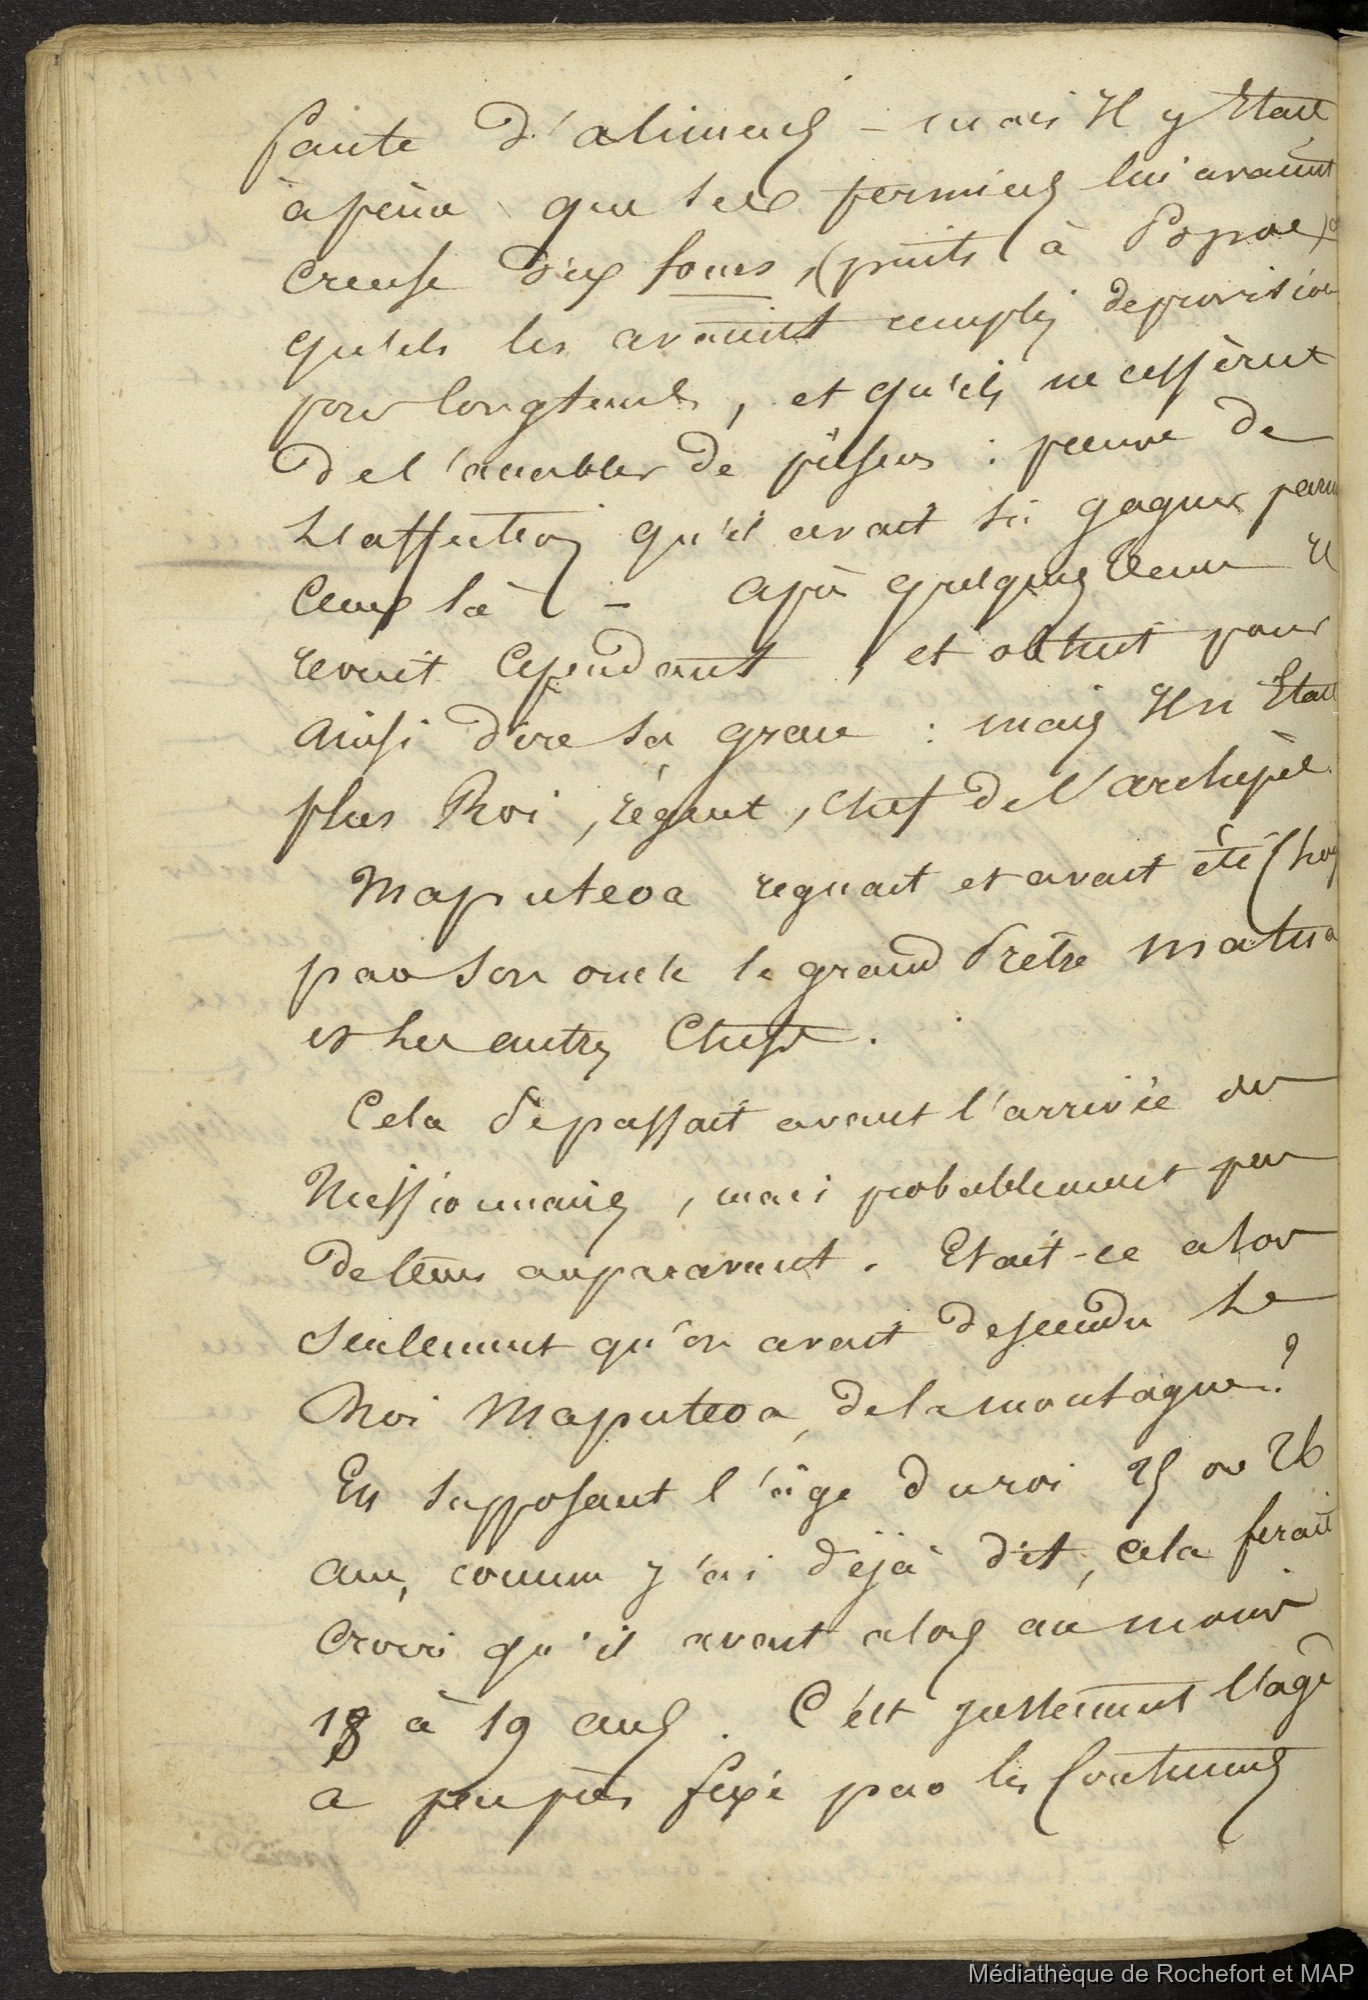 faute d'aliments – mais Il y Etait
à peine que ses fermiers lui avaient
creusé deux fours, (puits à Popoe)
qu'ils les avaient remplis de provision
pour longtems, et qu'ils ne cessèrent
de l'accabler de présens : preuve de
L'affection qu'il avait su gagner parmi
ceux là – après quelques tems Il
revint cependant, et obtint pour
ainsi dire sa grace : mais Il n'Etait
plus Roi, régent, chef de l'archipel.
Maputeoa regnait et avait été choisi
par son oncle le grand Prêtre Matua
et les autres Chefs.
Cela se passait avant l'arrivée des
Missionnaires, mais probablement peu
de tems auparavant. Etait-ce alors
seulement qu'on avait descendu Le
Roi Maputeoa, de la montagne ?
En supposant l'âge du roi 25 ou 26
ans, comme j'ai déjà dit, cela ferait
croire qu'il avait alors au moins
18 à 19 ans. C'est justement l'age
a peu près fixé par les Coutumes
Médiathèque de Rochefort et MAP